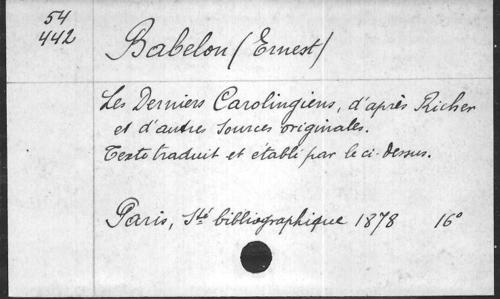 54
442
Babelon (Ernest)
Les Derniers Carolingiens, d'après Richer
et d'autres sources originales.
Texte traduit et établi par le ci-dessus.
Paris, Sté bibliographique 1878 16°